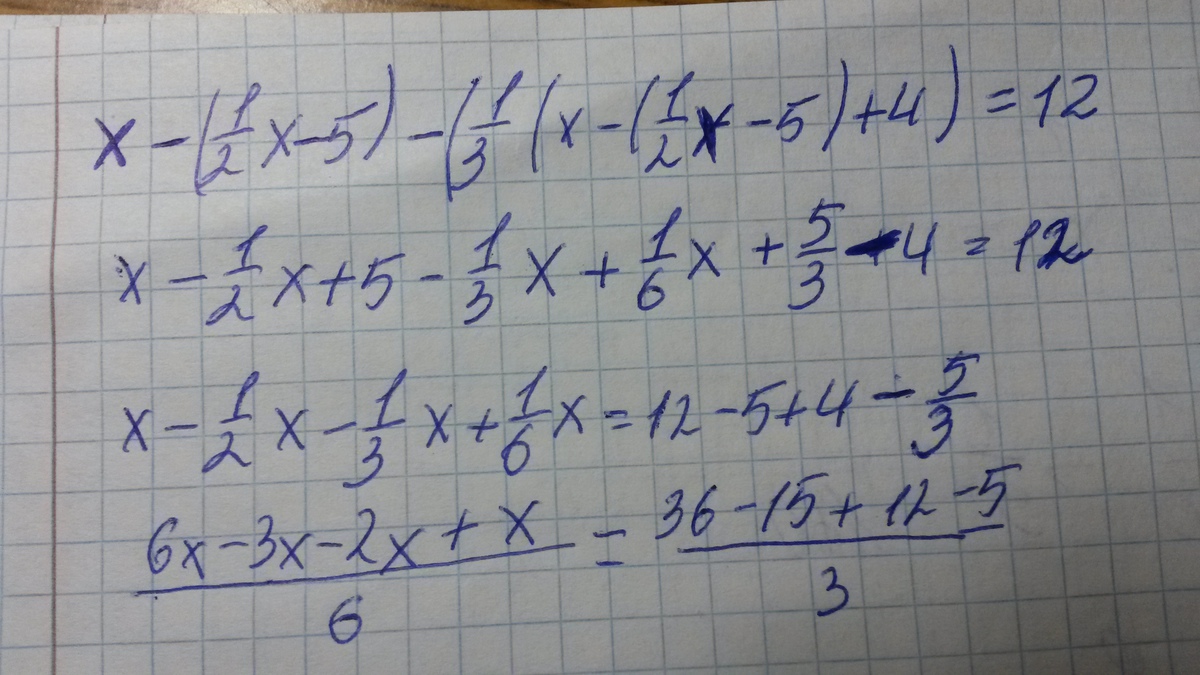 x - (1/2 x - 5) - (1/3 (x - (1/2 x - 5) + 4) = 12
x - 1/2 x + 5 - 1/3 x + 1/6 x + 5/3 - 4 = 12
x - 1/2 x - 1/3 x + 1/6 x = 12 - 5 + 4 - 5/3
(6x - 3x - 2x + x)/6 = (36 - 15 + 12 - 5)/3